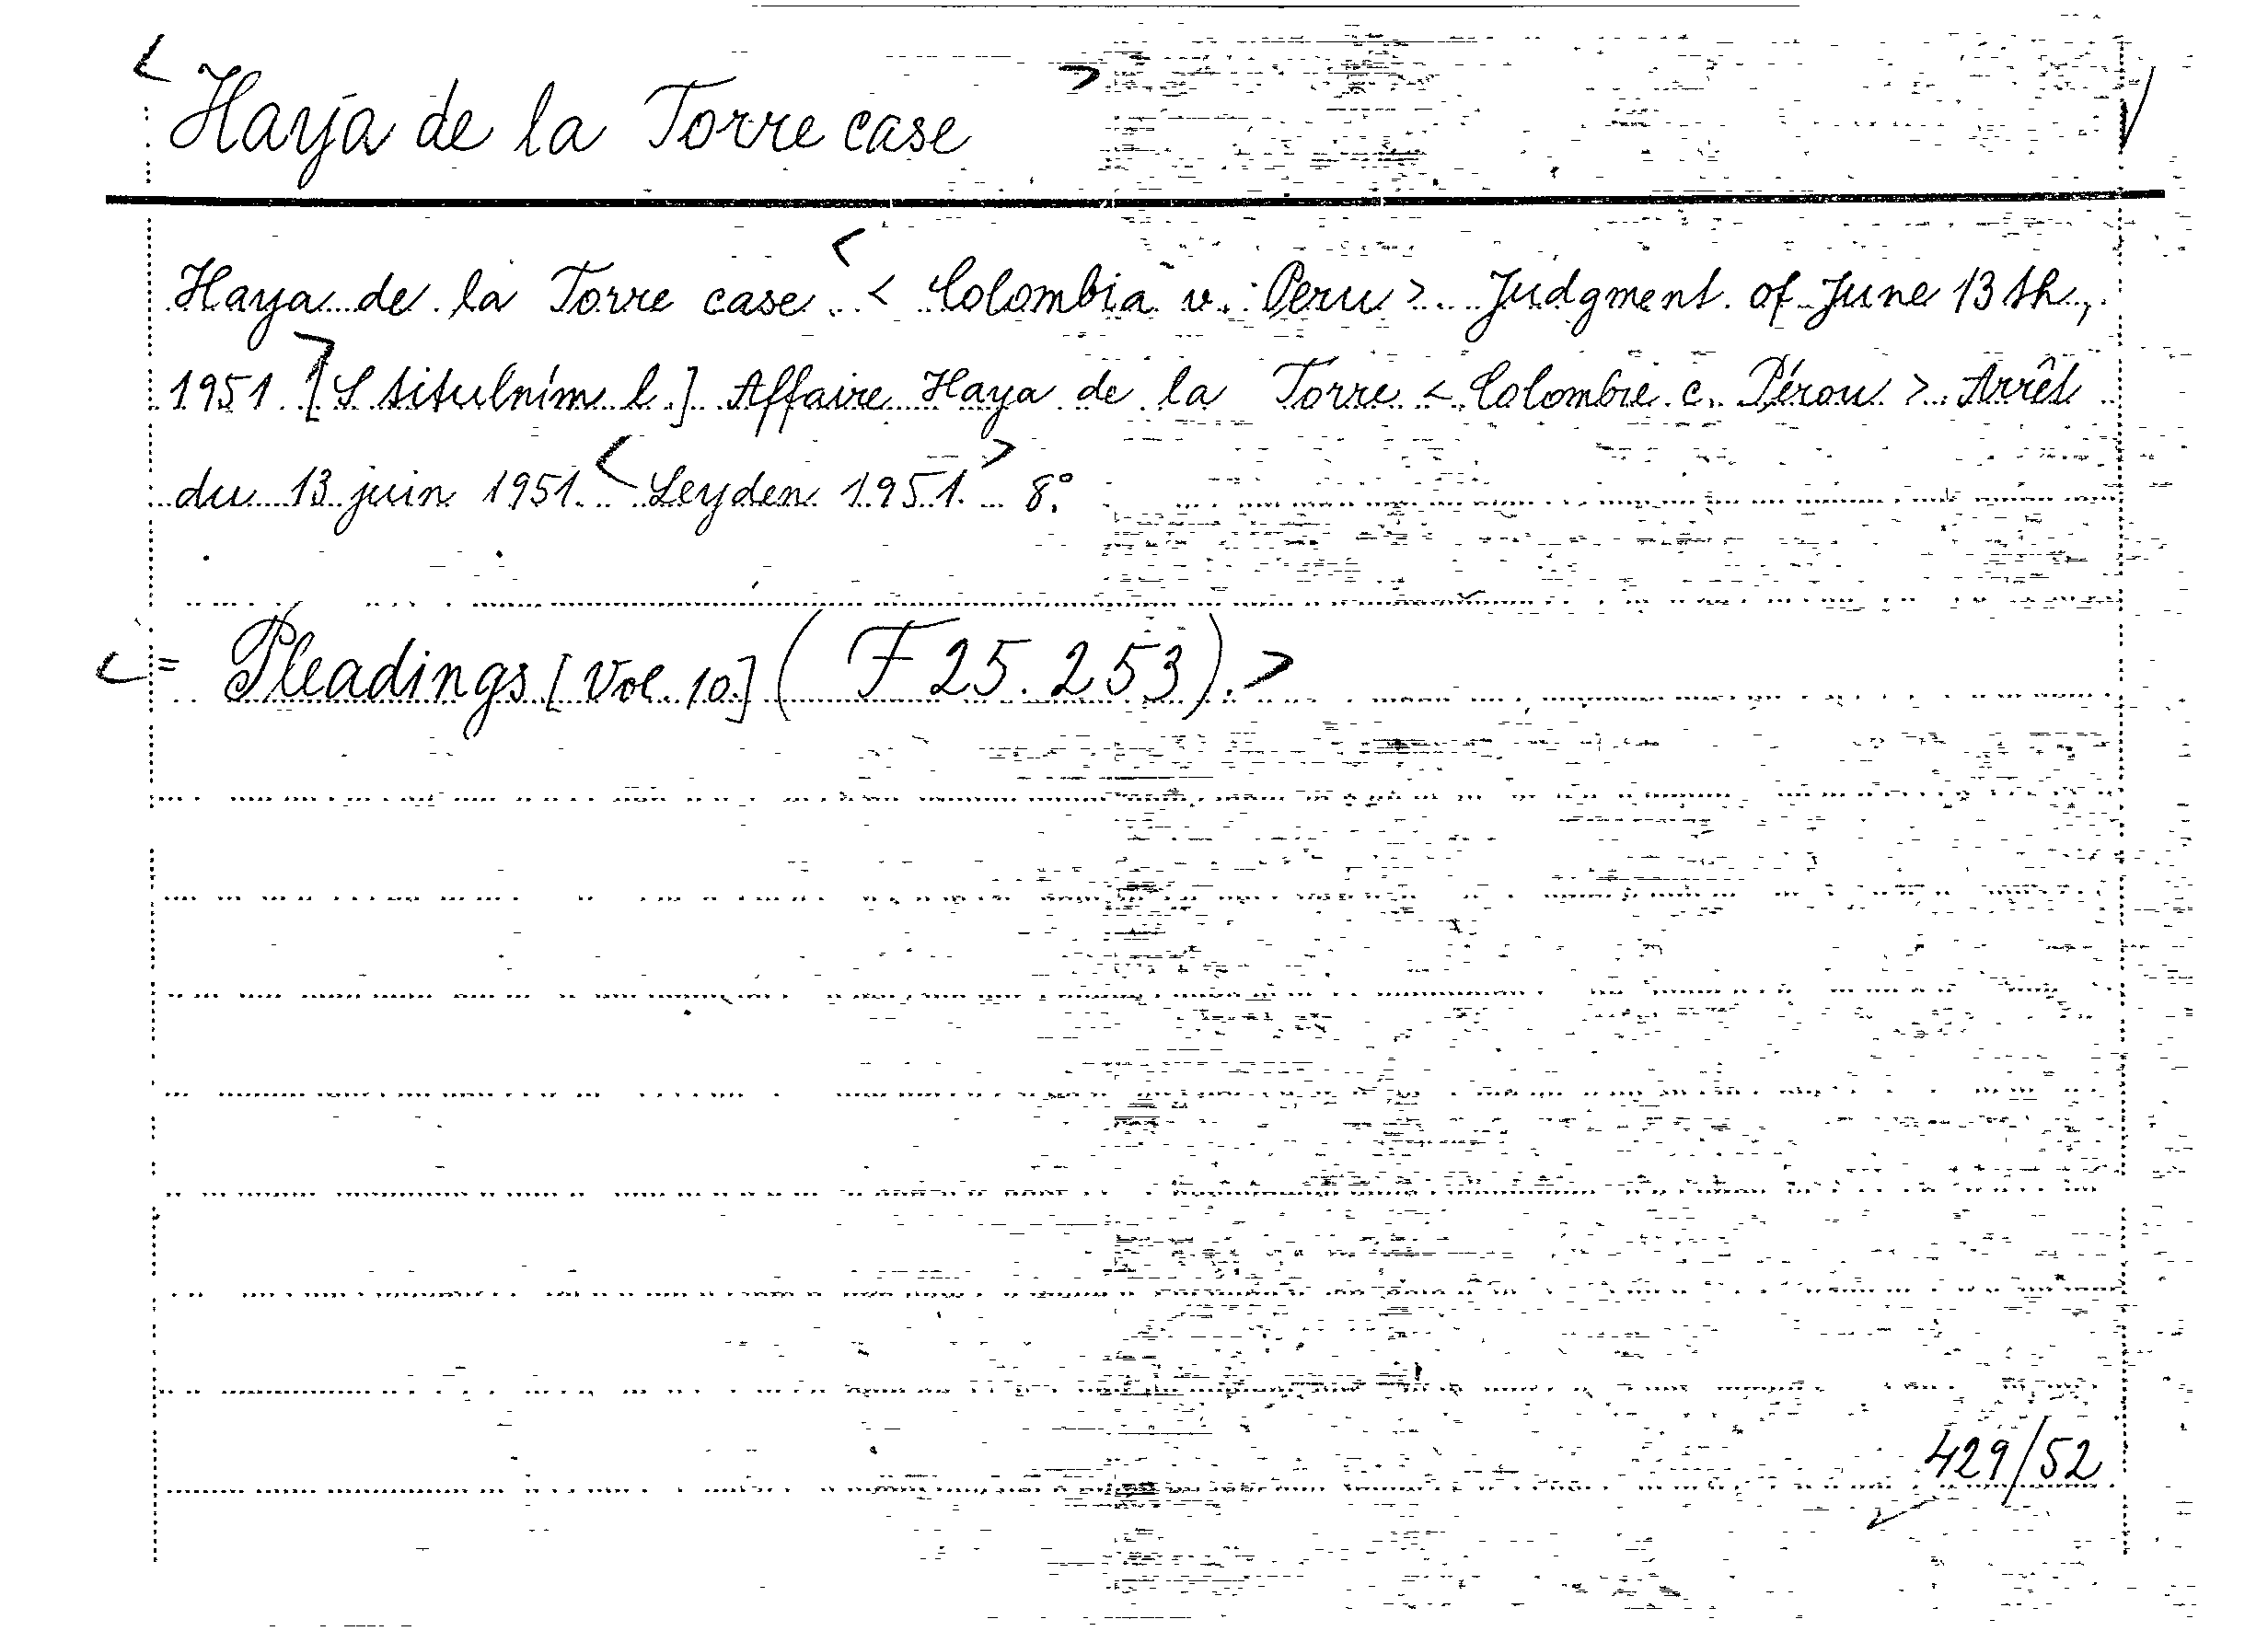 <Haya de la Torre case>
Haya de la Torre case. < < Colombia v. Peru >. Judgment of June 13th,
1951 > [S titulním l.] Affaire Haya de la Torre < Colombie c. Pérou > Arrêt
du 13 juin 1951. < Leyden 1951. > 8°.
< = Pleadings [Vol. 10.] (F 25.253). >
429/52